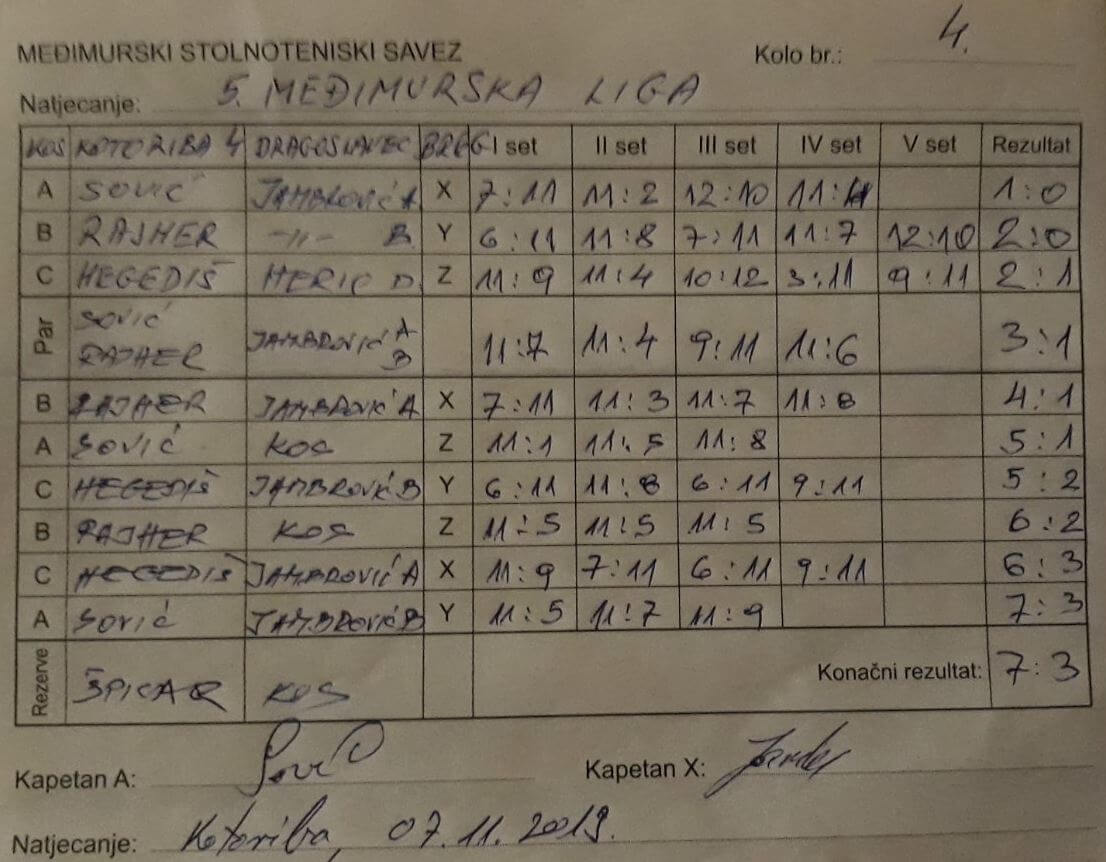 MEĐIMURSKI STOLNOTENISKI SAVEZ Kolo br.: 4.
Natjecanje: 5. MEĐIMURSKA LIGA
KOS KOTORIBA 4 DRAGOSLAVEC BREG I set II set III set IV set V set Rezultat
A SOVIĆ JAMBROVIĆ A X 7:11 11:2 12:10 11:4 1:0
B RAJHER -11- B Y 6:11 11:8 7:11 11:7 12:10 2:0
C HEGEDIŠ HERIC D. Z 11:9 11:4 10:12 3:11 9:11 2:1
Par SOVIĆ RAJHER JAMBROVIĆ A B 11:7 11:4 9:11 11:6 3:1
B RAJHER JAMBROVIĆ A X 7:11 11:3 11:7 11:8 4:1
A SOVIĆ KOS Z 11:1 11:5 11:8 5:1
C HEGEDIŠ JAMBROVIĆ B Y 6:11 11:8 6:11 9:11 5:2
B RAJHER KOS Z 11:5 11:5 11:5 6:2
C HEGEDIŠ JAMBROVIĆ A X 11:9 7:11 6:11 9:11 6:3
A SOVIĆ JAMBROVIĆ B Y 11:5 11:7 11:9 7:3
Rezerve ŠPICAR KOS Konačni rezultat: 7:3
Kapetan A: Sović Kapetan X:
Natjecanje: Kotoriba, 07.11.2019.